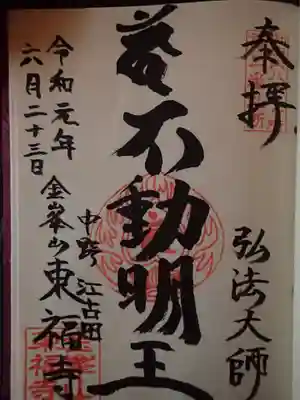 奉拝
弘法大師
不動明王
中野 江古田
金峯山東福寺
令和元年
六月二十三日